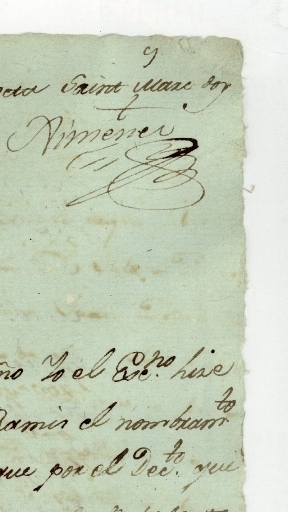 9
Saint Marc doy
Ximenez
ño Yo el Esc.no hize
Ramis el nombram.to
que por el Dec.to que